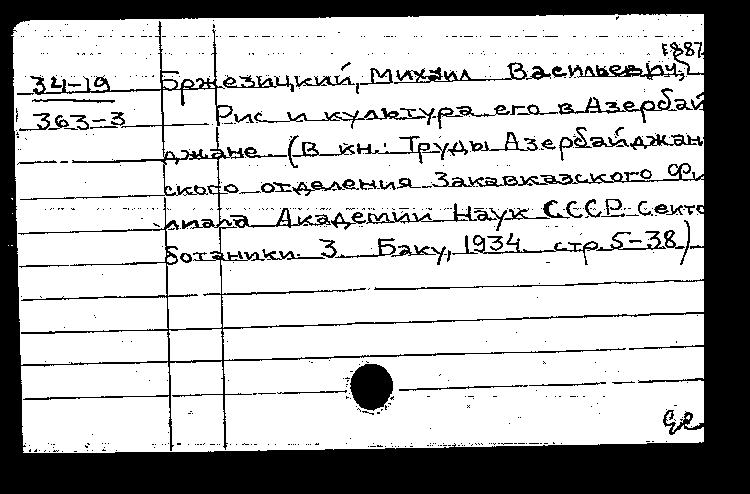 1887
34-19 Бржезицкий, Михаил Васильевич,
363-3 Рис и культура его в Азербай
джане. (В кн.: Труды Азербайджан
ского отделения Закавказского Фи
лиала Академии Наук СССР. Секто
ботаники. 3. Баку, 1934. стр. 5-38)